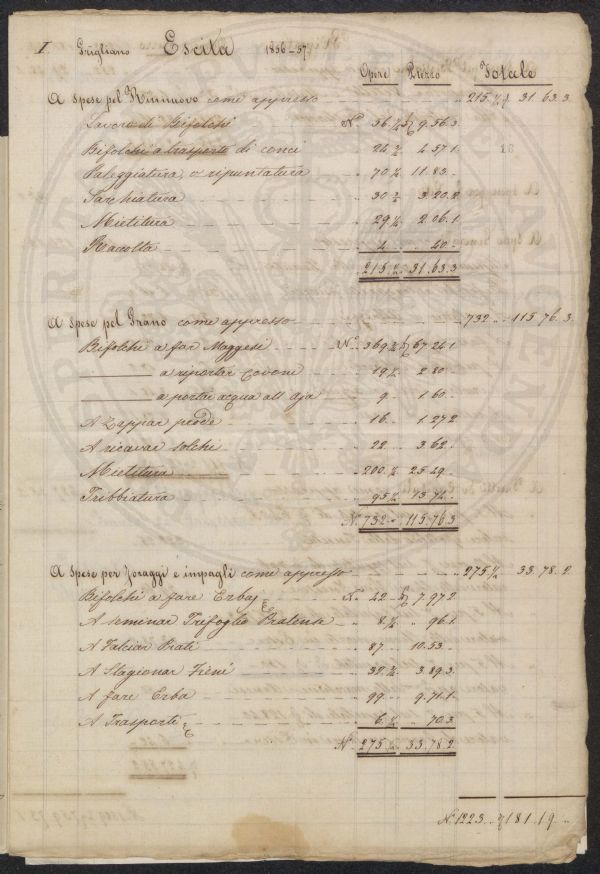 I Grigliano Escita 1856-57
Opere Prezzo Totale
A Spese pel Rinnuovo come appresso 215 ½ 31.63.3
Lavoro di Bifolchi N. 56 ½ 9.56.3
Bifolchi a trasporto di conci 24 ½ 4.57.1
Paleggiatura o ripuntatura 70 ½ 11.83
Sarchiatura 30 ½ 3.20.2
Mietitura 29 ½ 2.06.1
Raccolta 4 40
215 ½ 31.63.3
A Spese pel Grano come appresso 732 115.76.3
Bifolchi a far Maggesi N. 369 ½ 67.26.1
a riportar Covoni 19 ½ 2.80
a portar acqua all'aja 9 1.60
A Zappar prode 16 1.27.2
A ricavar solchi 22 3.62
Mietitura 200 ½ 25.49
Tribbiatura 95 ½ 13.74
N. 732 115.76.3
A Spese per foraggi e impagli come appresso 275 ½ 33.78.2
Bifolchi a fare Erbaj N. 22 7.97.2
A seminar Trifoglio e Pratense 8 ½ 96.1
A Falciar Prati 87 10.53
A Stagionar Fieni 32 ½ 3.89.3
A fare Erba 99 9.71.1
A Trasporti 6 ½ 70.3
N. 275 ½ 33.78.2
N. 1223 181.19